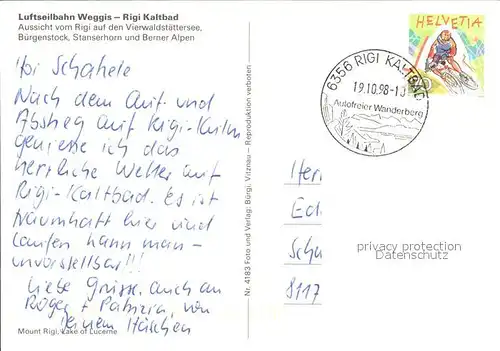 Luftseilbahn Weggis – Rigi Kaltbad
Aussicht vom Rigi auf den Vierwaldstättersee,
Bürgenstock, Stanserhorn und Berner Alpen
Hoi Schahele
Nach dem Auf- und
Abstieg auf Rigi-Kulm
geniesse ich das
herrliche Wetter auf
Rigi-Kaltbad. Es ist
traumhaft hier und
laufen kann man –
unvorstellbar!!!
Liebe Grüsse, auch an
Roger + Patrizia, von
Deinem Häschen
Mount Rigi, Lake of Lucerne
Nr. 4183 Foto und Verlag: Bürgi, Vitznau – Reproduktion verboten
HELVETIA
6356 RIGI KALTBAD
19.10.98-10
Autofreier Wanderberg
Herr
Ed
Scha
8117
privacy protection
Datenschutz